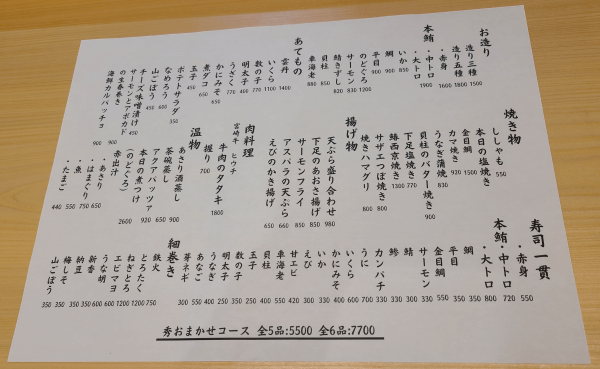 お造り
造り三種 1500
造り五種 1800
本鮪
・赤身 1600
・中トロ 1900
・大トロ
いか 850
鯛 900
平目 900
のどぐろ 1200
サーモン 830
鯖きずし 820
貝柱 850
車海老 880
あてもの
雲丹 1400
いくら 1100
数の子 770
明太子 400
うざく 770
かにみそ 650
煮ダコ 650
玉子 450
ポテトサラダ 350
なめろう 600
山ごぼう 450
チーズ味噌漬け 450
サーモンとアボカド
の生春巻き 900
海鮮カルパッチョ 900
焼き物
ししゃも 550
本日の塩焼き
金目鯛 1500
カマ焼き 920
うなぎ蒲焼 830
貝柱のバター焼き 900
下足塩焼き 770
鰆西京焼き 1300
サザエつぼ焼き 800
焼きハマグリ 800
揚げ物
天ぷら盛り合わせ 980
下足のあおさ揚げ 850
サーモンフライ 850
アスパラの天ぷら 660
えびのかき揚げ 650
肉料理
宮崎牛 ヒウチ
牛肉のタタキ 1800
握り 700
温物
あさり酒蒸し 900
茶碗蒸し 650
アクアパッツァ 920
本日の煮つけ
(のどぐろ) 2600
赤出汁
・あさり 650
・はまぐり 750
・魚 550
・たまご 440
寿司一貫
本鮪
・赤身 550
・中トロ 720
・大トロ 800
鯛 350
平目 350
金目鯛 550
サーモン 330
鯖 300
鯵 300
カンパチ 440
うに 700
いくら 600
かにみそ 400
いか 330
えび 300
甘エビ 420
車海老 550
貝柱 400
玉子 200
数の子 350
明太子 250
うなぎ 400
あなご 550
芽ネギ 350
細巻き
鉄火 750
とろたく 1200
ねぎとろ 1200
エビマヨ 600
うな胡 600
新香 350
納豆 350
梅しそ 350
山ごぼう 350
秀おまかせコース 全5品:5500 全6品:7700